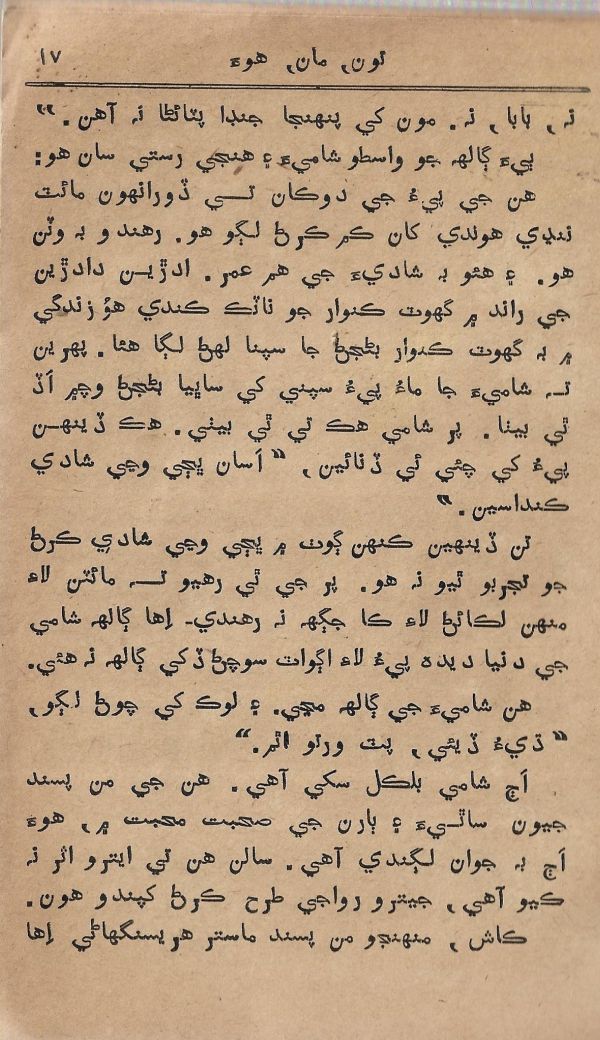 تون، مان، هوءَ ١٧
نہ، بابا، نہ. مون کي پنهنجا جنڊا پٽائڻا نہ آهن.”
ٻيءَ ڳالهہ جو واسطو شاميءَ ۽ هنجي رستي سان هو:
هن جي پيءُ جي دوڪان تــي ڏورانهون مائٽ
ننڍي هوندي کان ڪم ڪرڻ لڳو هو. رهندو بہ وٽن
هو. ۽ هئو بہ شاديءَ جي هم عمر. ادڙيــن دادڙين
جي راند ۾ گهوٽ ڪنوار جو ناٽڪ ڪندي هؤ زندگي
۾ بہ گهوٽ ڪنوار بڻجڻ جا سپنا لهڻ لڳا هئا. پهرين
تــہ شاميءَ جا ماءُ پيءُ سپني کي ساڀيا بڻجڻ وچ۾ اَڏ
ٿي بيٺا. پر شامي هڪ تي ٿي بيٺي. هڪ ڏينهــن
پيءُ کي چٽي ئي ڏنائين، “اَسان ڀڄي وڃي شادي
ڪنداسين.”
تن ڏينهين ڪنهن ڳوٽ ۾ ڀڄي وڃي شادي ڪرڻ
جو تجربو ٿيو نہ هو. پر جي ٿي رهيو تــہ مائٽن لاءِ
منهن لڪائڻ لاءِ ڪا جڳهہ نہ رهندي۔ اِها ڳالهہ شامي
جي دنيا ديده پيءُ لاءِ اڳواٽ سوچڻ ڏکي ڳالهہ نہ هئي.
هن شاميءَ جي ڳالهہ مڃي. ۽ لوڪ کي چوڻ لڳو،
“ڌيءُ ڏيئي، پٽ ورتو اٿم.”
اَڄ شامي بلڪل سکي آهي. هن جي من پسند
جيون ساٿــيءَ ۽ ٻارن جي صحبت محبت ۾، هوءَ
اَڄ بہ جوان لڳندي آهي. سالن هن تي ايترو اثر نہ
ڪيو آهي، جيترو رواجي طرح ڪرڻ کپندو هون.
ڪاش، منهنجو من پسند ماستر هريسنگهاڻي اِها